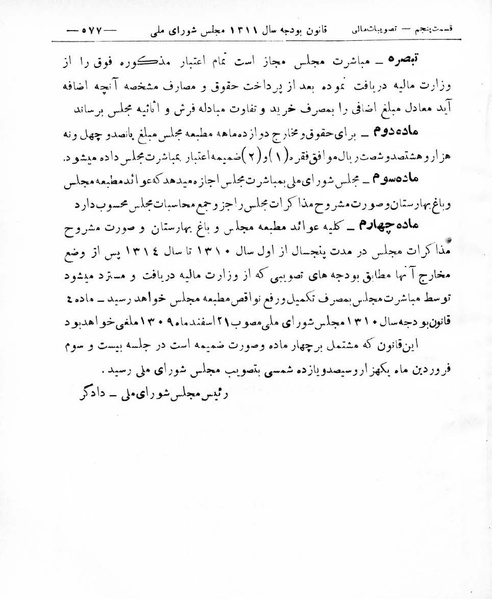 قسمت پنجم — تصویبات مالی قانون بودجه سال ۱۳۱۱ مجلس شورای ملی —۵۷۷—
تبصره ـ مباشرت مجلس مجاز است تمام اعتبار مذکوره فوق را از
وزارت مالیه دریافت نموده بعد از پرداخت حقوق و مصارف مشخصه آنچه اضافه
آید معادل مبلغ اضافی را بمصرف خرید و تفاوت مبادله فرش و اثاثیه مجلس برساند
ماده دوم ـ برای حقوق و مخارج دوازده ماهه مطبعه مجلس مبلغ پانصد و چهل و نه
هزار و هشتصد و شصت ریال موافق فقره (۱) و (۲) ضمیمه اعتبار بمباشرت مجلس داده میشود.
ماده سوم ـ مجلس شورای ملی بمباشرت مجلس اجازه میدهد که عوائد مطبعه مجلس
و باغ بهارستان و صورت مشروح مذاکرات مجلس را جزو جمع محاسبات مجلس محسوب دارد
ماده چهارم ـ کلیه عوائد مطبعه مجلس و باغ بهارستان و صورت مشروح
مذاکرات مجلس در مدت پنجسال از اول سال ۱۳۱۰ تا سال ۱۳۱٤ پس از وضع
مخارج آنها مطابق بودجه های تصویبی که از وزارت مالیه دریافت و مسترد میشود
توسط مباشرت مجلس بمصرف تکمیل و رفع نواقص مطبعه مجلس خواهد رسید ـ ماده ٤
قانون بودجه سال ۱۳۱۰ مجلس شورای ملی مصوب ۲۱ اسفند ماه ۱۳۰۹ ملغی خواهد بود
این قانون که مشتمل بر چهار ماده و صورت ضمیمه است در جلسه بیست و سوم
فروردین ماه یکهزار و سیصد و یازده شمسی بتصویب مجلس شورای ملی رسید.
رئیس مجلس شورای ملی ـ دادگر